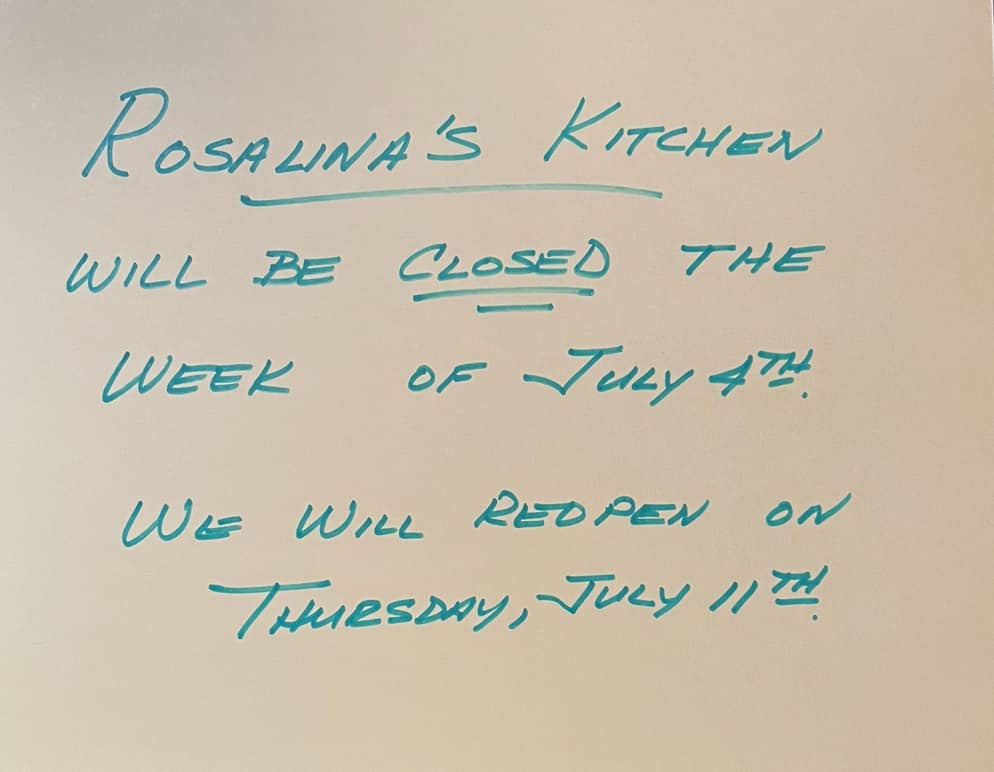 ROSALINA'S KITCHEN
WILL BE CLOSED THE
WEEK OF JULY 4TH.
WE WILL REOPEN ON
THURSDAY, JULY 11TH.